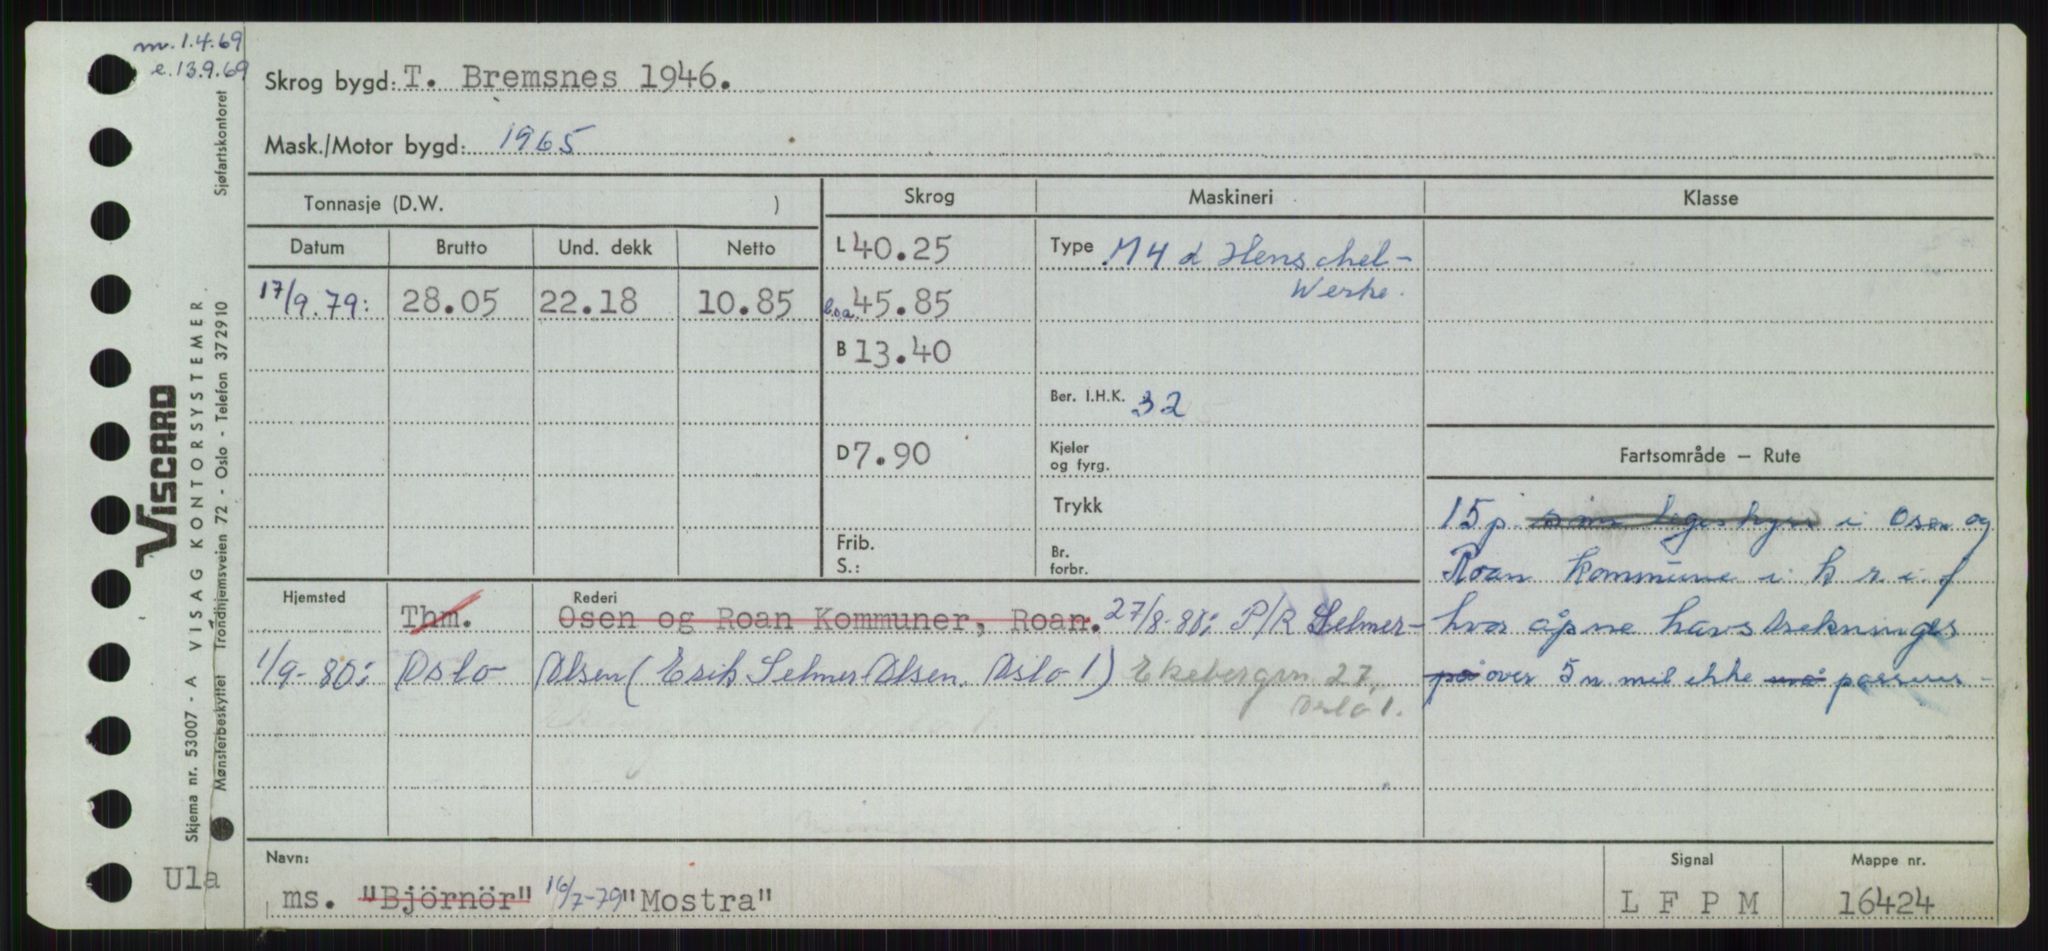 m. 1.4.69
e. 13.9.69
Sjøfartskontoret
Skrog bygd: T. Bremsnes 1946.
Mask./Motor bygd: 1965
Tonnasje (D.W. )
Skrog
Maskineri
Klasse
Datum Brutto Und. dekk Netto
17/9.79: 28.05 22.18 10.85
L 40.25
l.o.a. 45.85
B 13.40
D 7.90
Frib.
S.:
Type M4 d Henschel-
Werke.
Ber. I.H.K. 32
Kjeler
og fyrg.
Trykk
Br.
forbr.
Fartsområde — Rute
15 p. i Osen og
Roan kommune i k s i f
hvor åpne havstrekninger
på over 5 n mil ikke må passeres
Hjemsted
Rederi
Thm. Osen og Roan Kommuner, Roan. 27/8-80: P/R Selmer-
1/9-80: Oslo Olsen (Erik Selmer Olsen, Oslo 1) Ekebergvn 27,
Oslo 1.
Navn:
ms. "Björnör" 16/7-79 "Mostra"
Signal
L F P M
Mappe nr.
16424
Ula
VISCARD
Skjema nr. 53007 - A VISAG KONTORSYSTEMER
Mønsterbeskyttet Trondhjemsveien 72 - Oslo - Telefon 372910